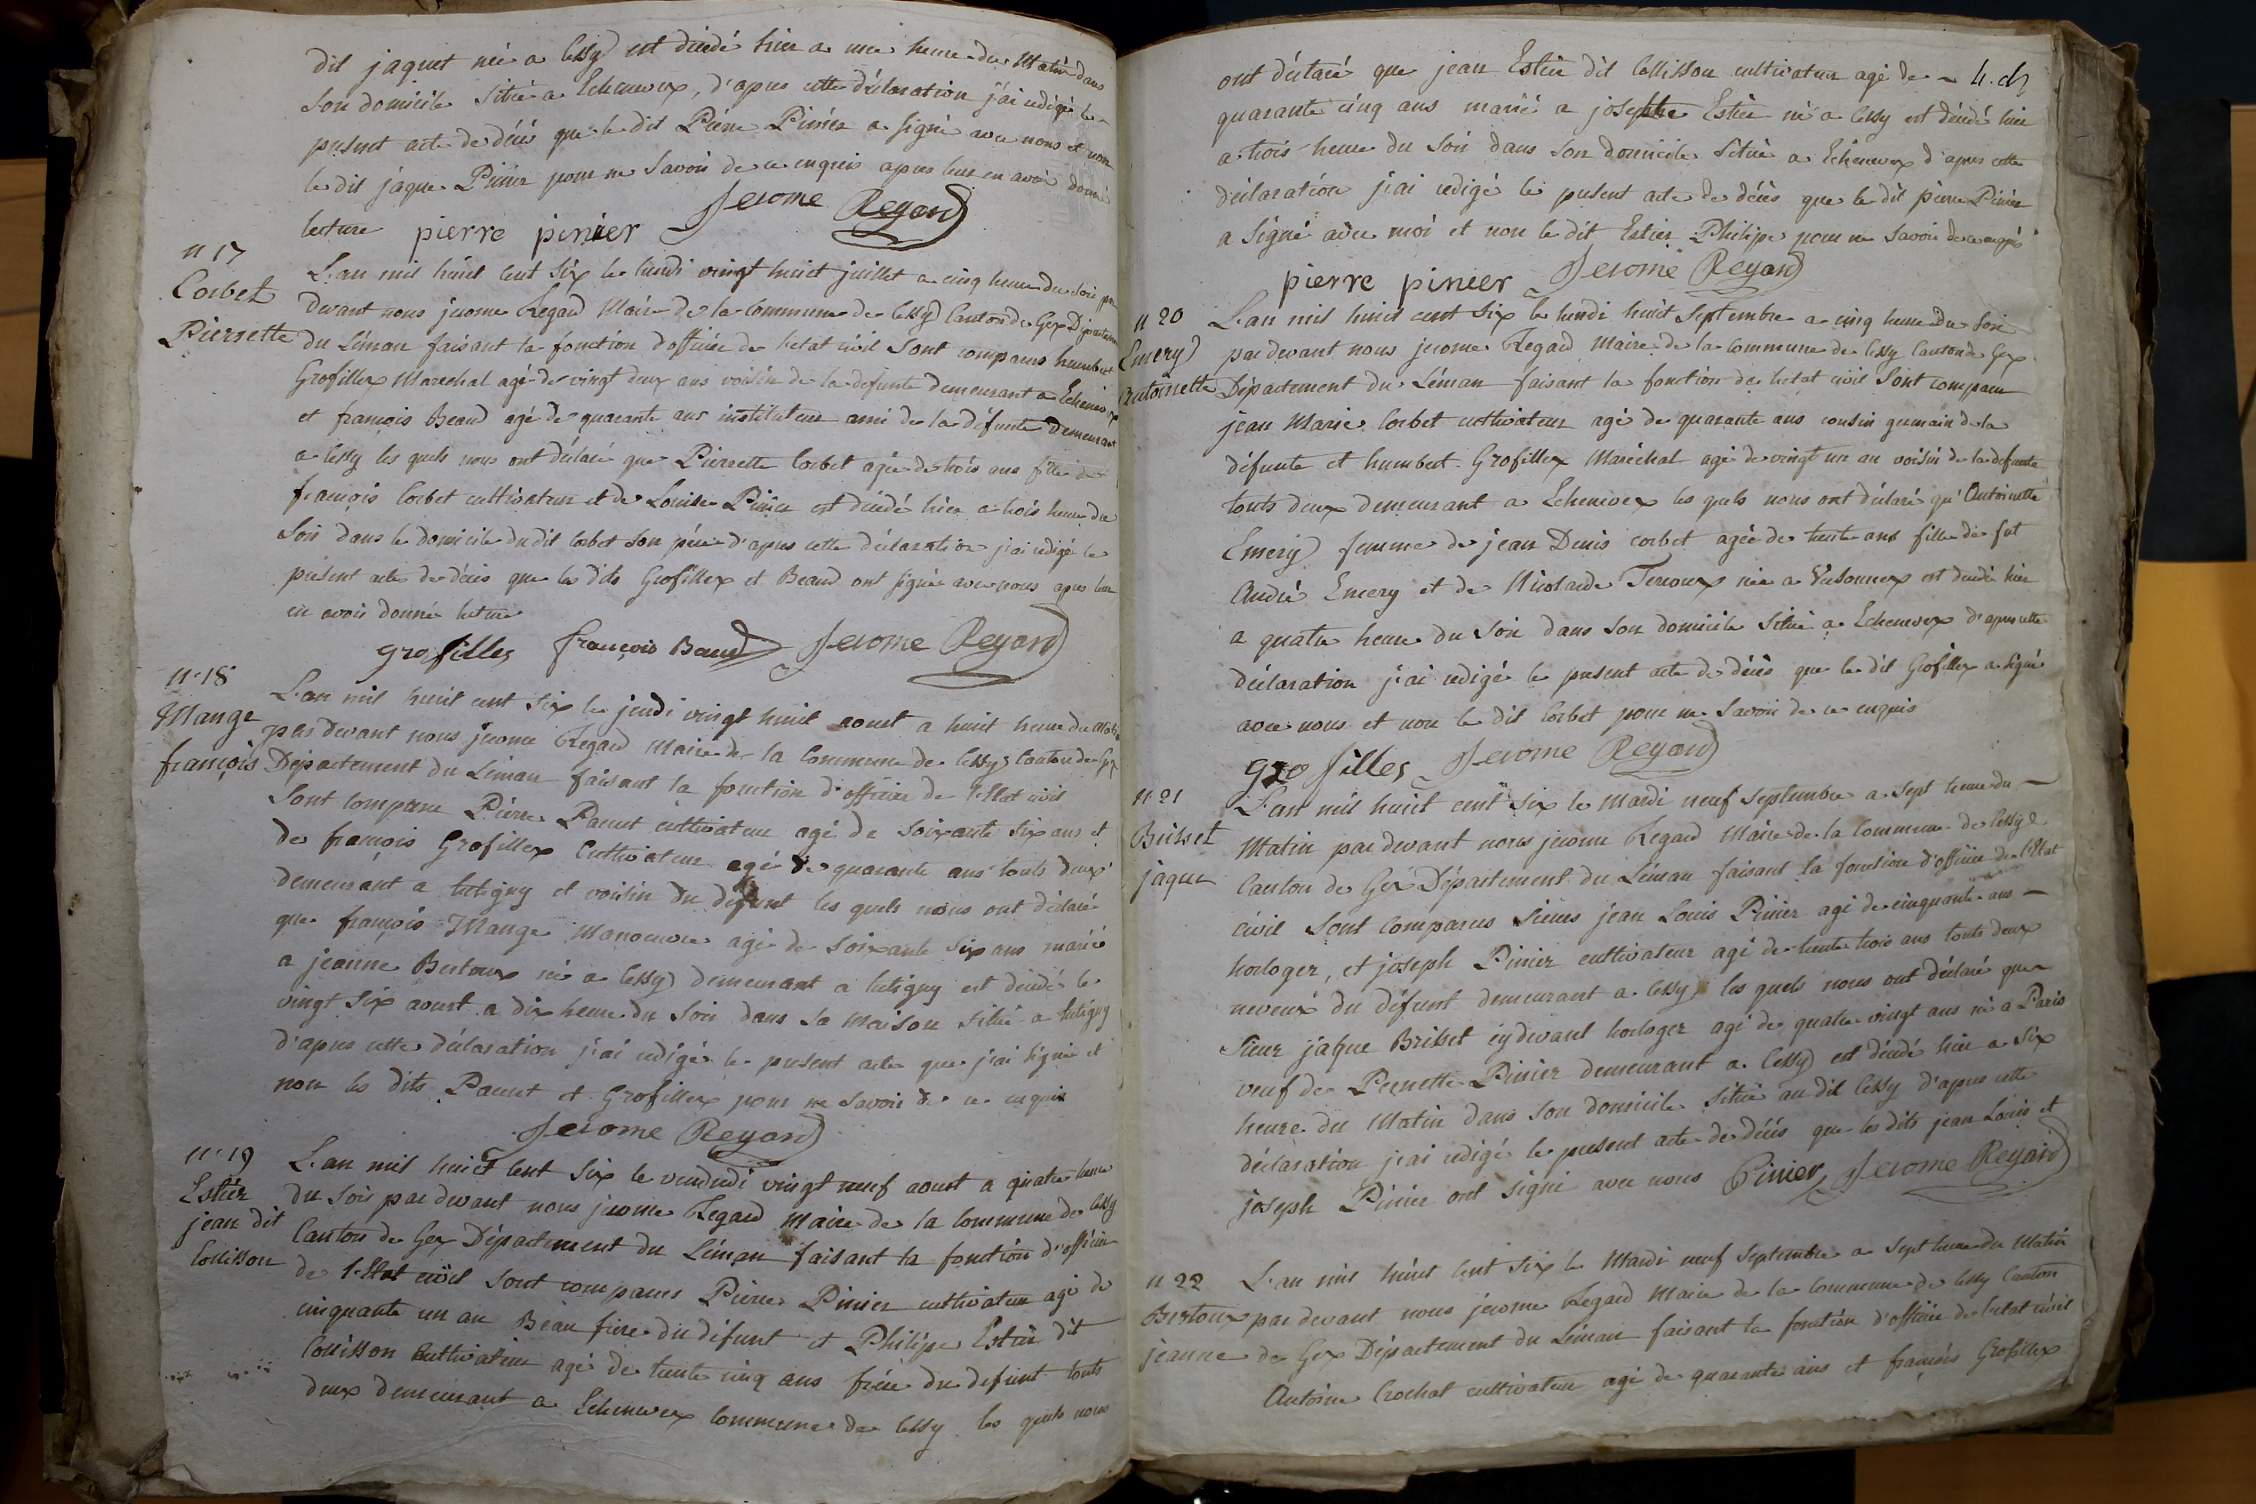 dit jaquet né a Cessy est décédé hier a une heure du Matin dans
son domicile situé a Echenevex, d'apres cette déclaration j'ai rédigé le
présent acte de décés que le dit Pierre Pinier a signé avec nous et non
le dit jaque Pinier pour ne Savoir de ce enquis apres leur en avoir donné
lecture pierre pinier Jerome Regard
n 17
Corbet
Pierrette
L'an mil huit cent Six le lundi vingt huit juillet a cinq heure du soir par
devant nous jerome Regard Maire de la commune de Cessy Canton de Gex Département
du Léman faisant la fonction d'officier de letat civil Sont comparus humbert
Grofillex Marechal agé de vingt deux ans voisin de la defunte demeurant a Echenevex
et françois Beaud agé de quarante ans instituteur ami de la défunte Demeurant
a Cessy les quels nous ont déclaré que Pierrette Corbet agée de trois ans fille de
françois Corbet cultivateur et de Louise Pinier est décédé hier a trois heure du
Soir dans le domicile du dit Corbet son pére d'apres cette déclaration j'ai rédigé le
présent acte de décés que les dits Grofillex et Beaud ont signé avec nous apres leur
en avoir donné lecture
grofillex françois Baud Jerome Regard
n. 18
Mange
françois
L'an mil huit cent Six le jeudi vingt huit aoust a huit heure du Matin
par devant nous jerome Regard Maire de la Commune de Cessy Canton de Gex
Département du Léman faisant la fonction d'officier de l'Etat civil
Sont comparu Pierre Paunt cultivateur agé de Soixante six ans et
de françois Grofillex Cultivateur agé de quarante ans touts deux
demeurant a tutigny et voisin du défunt les quels nous ont déclaré
que françois Mange Manoeuvre agé de Soixante six ans marié
a jeanne Bertoux né a Cessy demeurant a tutigny est décédé le
vingt six aoust a dix heure du Soir dans sa Maison situé a tutigny
d'apres cette déclaration j'ai rédigé le present acte que j'ai signé et
non les dits Paunt et Grofillex pour ne Savoir de ce enquis
Jerome Regard
n. 19
Estier
jean dit
Collisson
L'an mil huit Cent Six le vendredi vingt neuf aoust a quatre heure
du Soir par devant nous jerome Regard Maire de la Commune de Cessy
Canton de Gex Département du Léman faisant la fonction d'officier
de l'Etat civil sont comparus Pierre Pinier cultivateur agé de
cinquante un an Beau frere du défunt et Philipe Estier dit
Collisson Cultivateur agé de trente cinq ans frére du defunt touts
deux demeurant a Echenevex Commune de Cessy les quels nous
ont déclaré que jean Estier dit Collisson cultivateur agé de
quarante cinq ans marié a josephe Estier né a Cessy est décédé hier
a trois heure du Soir dans son domicile situé a Echenevex d'apres cette
déclaration j'ai rédigé le présent acte de décés que le dit pierre Pinier
a signé avec moi et non le dit Estier Philipe pour ne Savoir de ce enquis
pierre pinier Jerome Regard
n 20
Emery
Antoinette
L'an mil huit cent Six le lundi huit Septembre a cinq heure du Soir
par devant nous jerome Regard Maire de la Commune de Cessy Canton de Gex
Département du Léman faisant la fonction de letat civil Sont comparu
jean Marie Corbet cultivateur agé de quarante ans cousin germain de la
défunte et humbert Grofillex Maréchal agé de vingt un an voisin de la defunte
touts deux demeurant a Echenevex les quels nous ont déclaré qu'Antoinette
Emery femme de jean Denis Corbet agée de trente ans fille de fut
André Emery et de Nicolarde Terroux née a Vesonnex est decédé hier
a quatre heure du Soir dans son domicile situé a Echenevex d'apres cette
déclaration j'ai rédigé le présent acte de décés que le dit Grofillex a signé
avec nous et non le dit Corbet pour ne Savoir de ce enquis
grofillex Jerome Regard
n. 21
Brisset
jaque
L'an mil huit cent Six le Mardi neuf Septembre a Sept heure du
Matin par devant nous jerome Regard Maire de la Commune de Cessy
Canton de Gex Département du Léman faisant la fonction d'officier de l'Etat
civil Sont comparus Sieurs jean Louis Pinier agé de cinquante ans
horloger, et joseph Pinier cultivateur agé de trente trois ans touts deux
neveux du défunt demeurant a Cessy les quels nous ont déclaré que
Sieur jaque Brisset cydevant horloger agé de quatre vingt ans né a Paris
veuf de Pernette Pinier demeurant a Cessy est décédé hier a six
heure du Matin dans son domicile situé au dit Cessy d'apres cette
déclaration j'ai rédigé le présent acte de décés que les dits jean Louis et
joseph Pinier ont signé avec nous Pinier Jerome Regard
n 22
Bertoux
jeanne
L'an mil huit Cent Six le Mardi neuf Septembre a Sept heure du Matin
par devant nous jerome Regard Maire de la Commune de Cessy Canton
de Gex Département du Léman faisant la fonction d'officier de letat civil
Antoine Crochat cultivateur agé de quarante ans et françois Grofillex